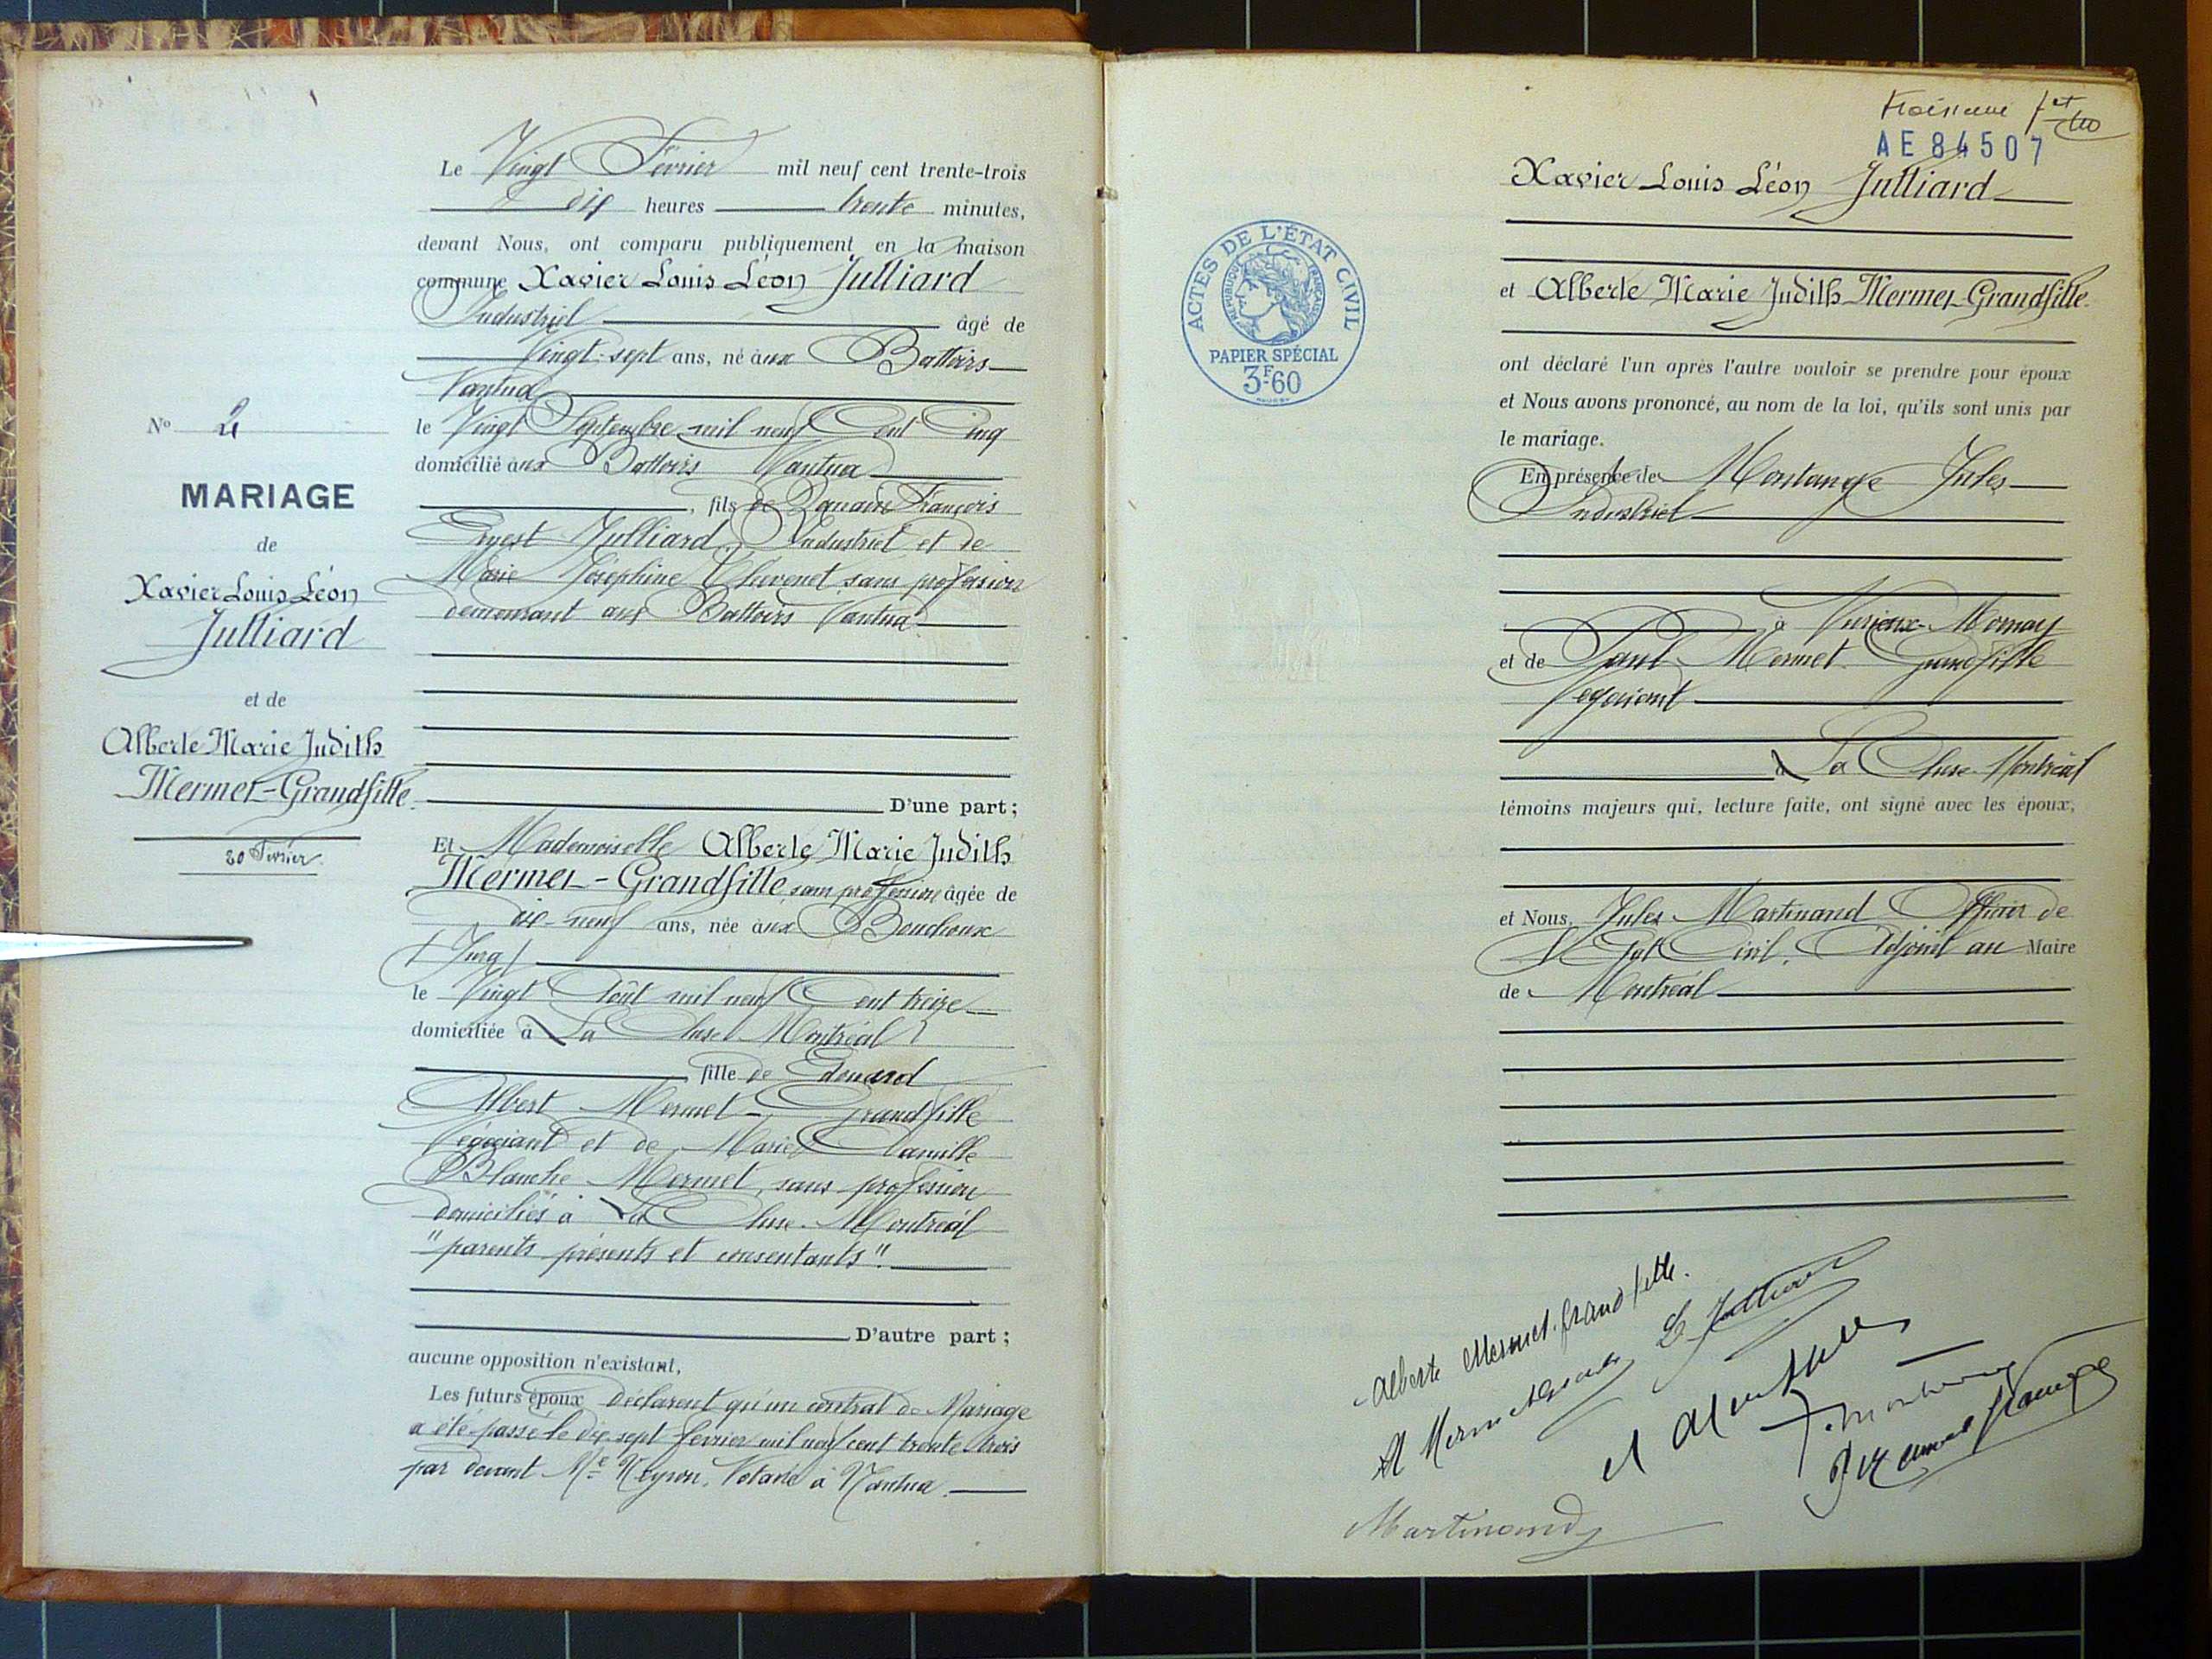 Le Vingt Février mil neuf cent trente-trois
dix heures trente minutes,
devant Nous, ont comparu publiquement en la maison
commune Xavier Louis Léon Julliard
Industriel âgé de
Vingt-sept ans, né aux Battoirs
Nantua
le Vingt Septembre mil neuf Cent Cinq
domicilié aux Battoirs Nantua
, fils de François
Ernest Julliard, Industriel et de
Marie Joséphine Thevenet, sans profession
demeurant aux Battoirs Nantua
D'une part;
Et Mademoiselle Alberte Marie Judith
Mermet-Grandfille, sans profession âgée de
dix-neuf ans, née aux Bouchoux
(Jura)
le Vingt Août mil neuf Cent treize
domiciliée à La Cluse Montréal
fille de Edouard
Albert Mermet-Grandfille
Négociant et de Marie Camille
Blanche Mermet, sans profession
domiciliés à La Cluse-Montréal
"parents présents et consentants".
D'autre part;
aucune opposition n'existant,
Les futurs époux déclarent qu'un contrat de Mariage
a été passé le dix-sept février mil neuf cent trente trois
par devant Me Neyron, Notaire à Nantua.
No 2
MARIAGE
de
Xavier Louis Léon
Julliard
et de
Alberte Marie Judith
Mermet-Grandfille.
20 Février
Troisième
AE 84507
ACTES DE L'ÉTAT CIVIL
RÉPUBLIQUE FRANÇAISE
PAPIER SPÉCIAL
3F60
Xavier Louis Léon Julliard
et Alberte Marie Judith Mermet-Grandfille
ont déclaré l'un après l'autre vouloir se prendre pour époux
et Nous avons prononcé, au nom de la loi, qu'ils sont unis par
le mariage.
En présence de Montange Jules
Industriel
à Vieux-Mornay
et de Paul Mermet Grandfille
Négociant
à La Cluse-Montréal
témoins majeurs qui, lecture faite, ont signé avec les époux,
et Nous, Jules Martinand Officier de
l'Etat Civil, Adjoint au Maire
de Montréal
Alberte Mermet-Grandfille.
Julliard
Martinand